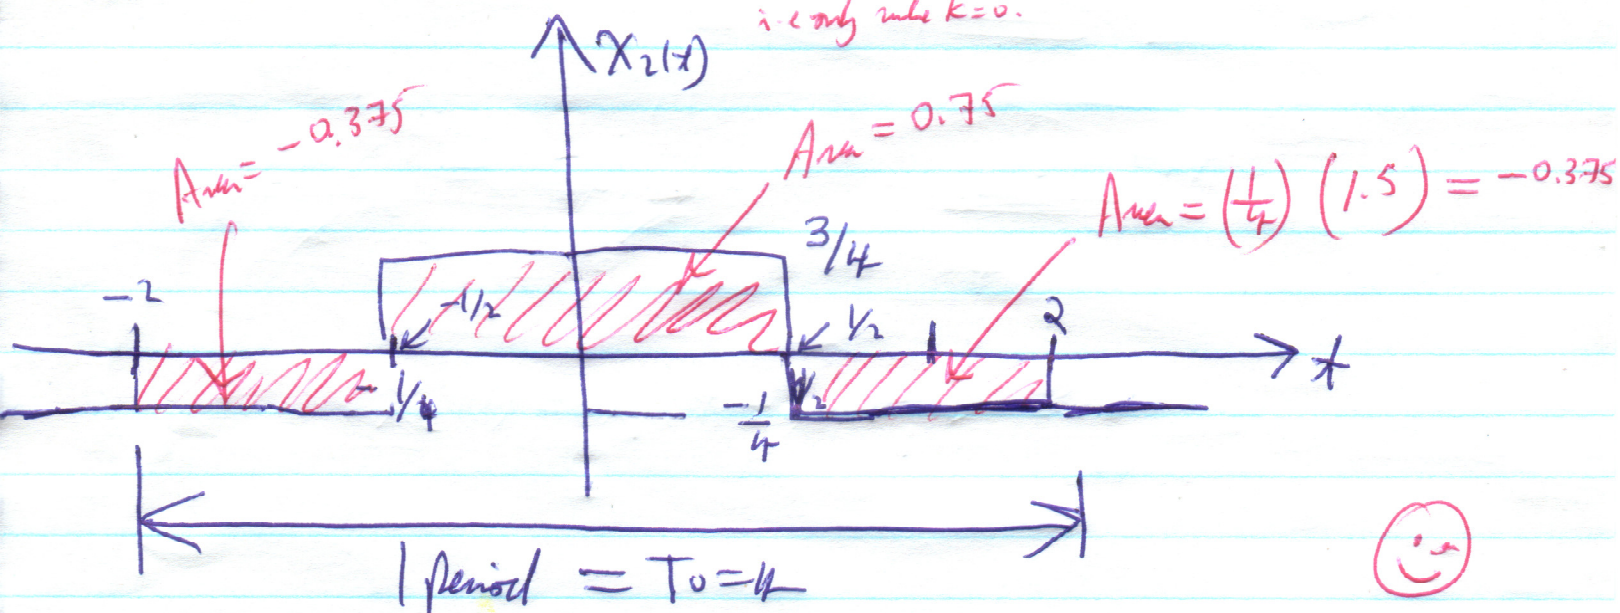 i.e only value k=0.
X₂(t)
Area = -0.375
Area = 0.75
Area = (1/4) (1.5) = -0.375
3/4
-2
-1/2
1/2
2
t
-1/4
-1/4
1/2
1 period = T₀ = 4